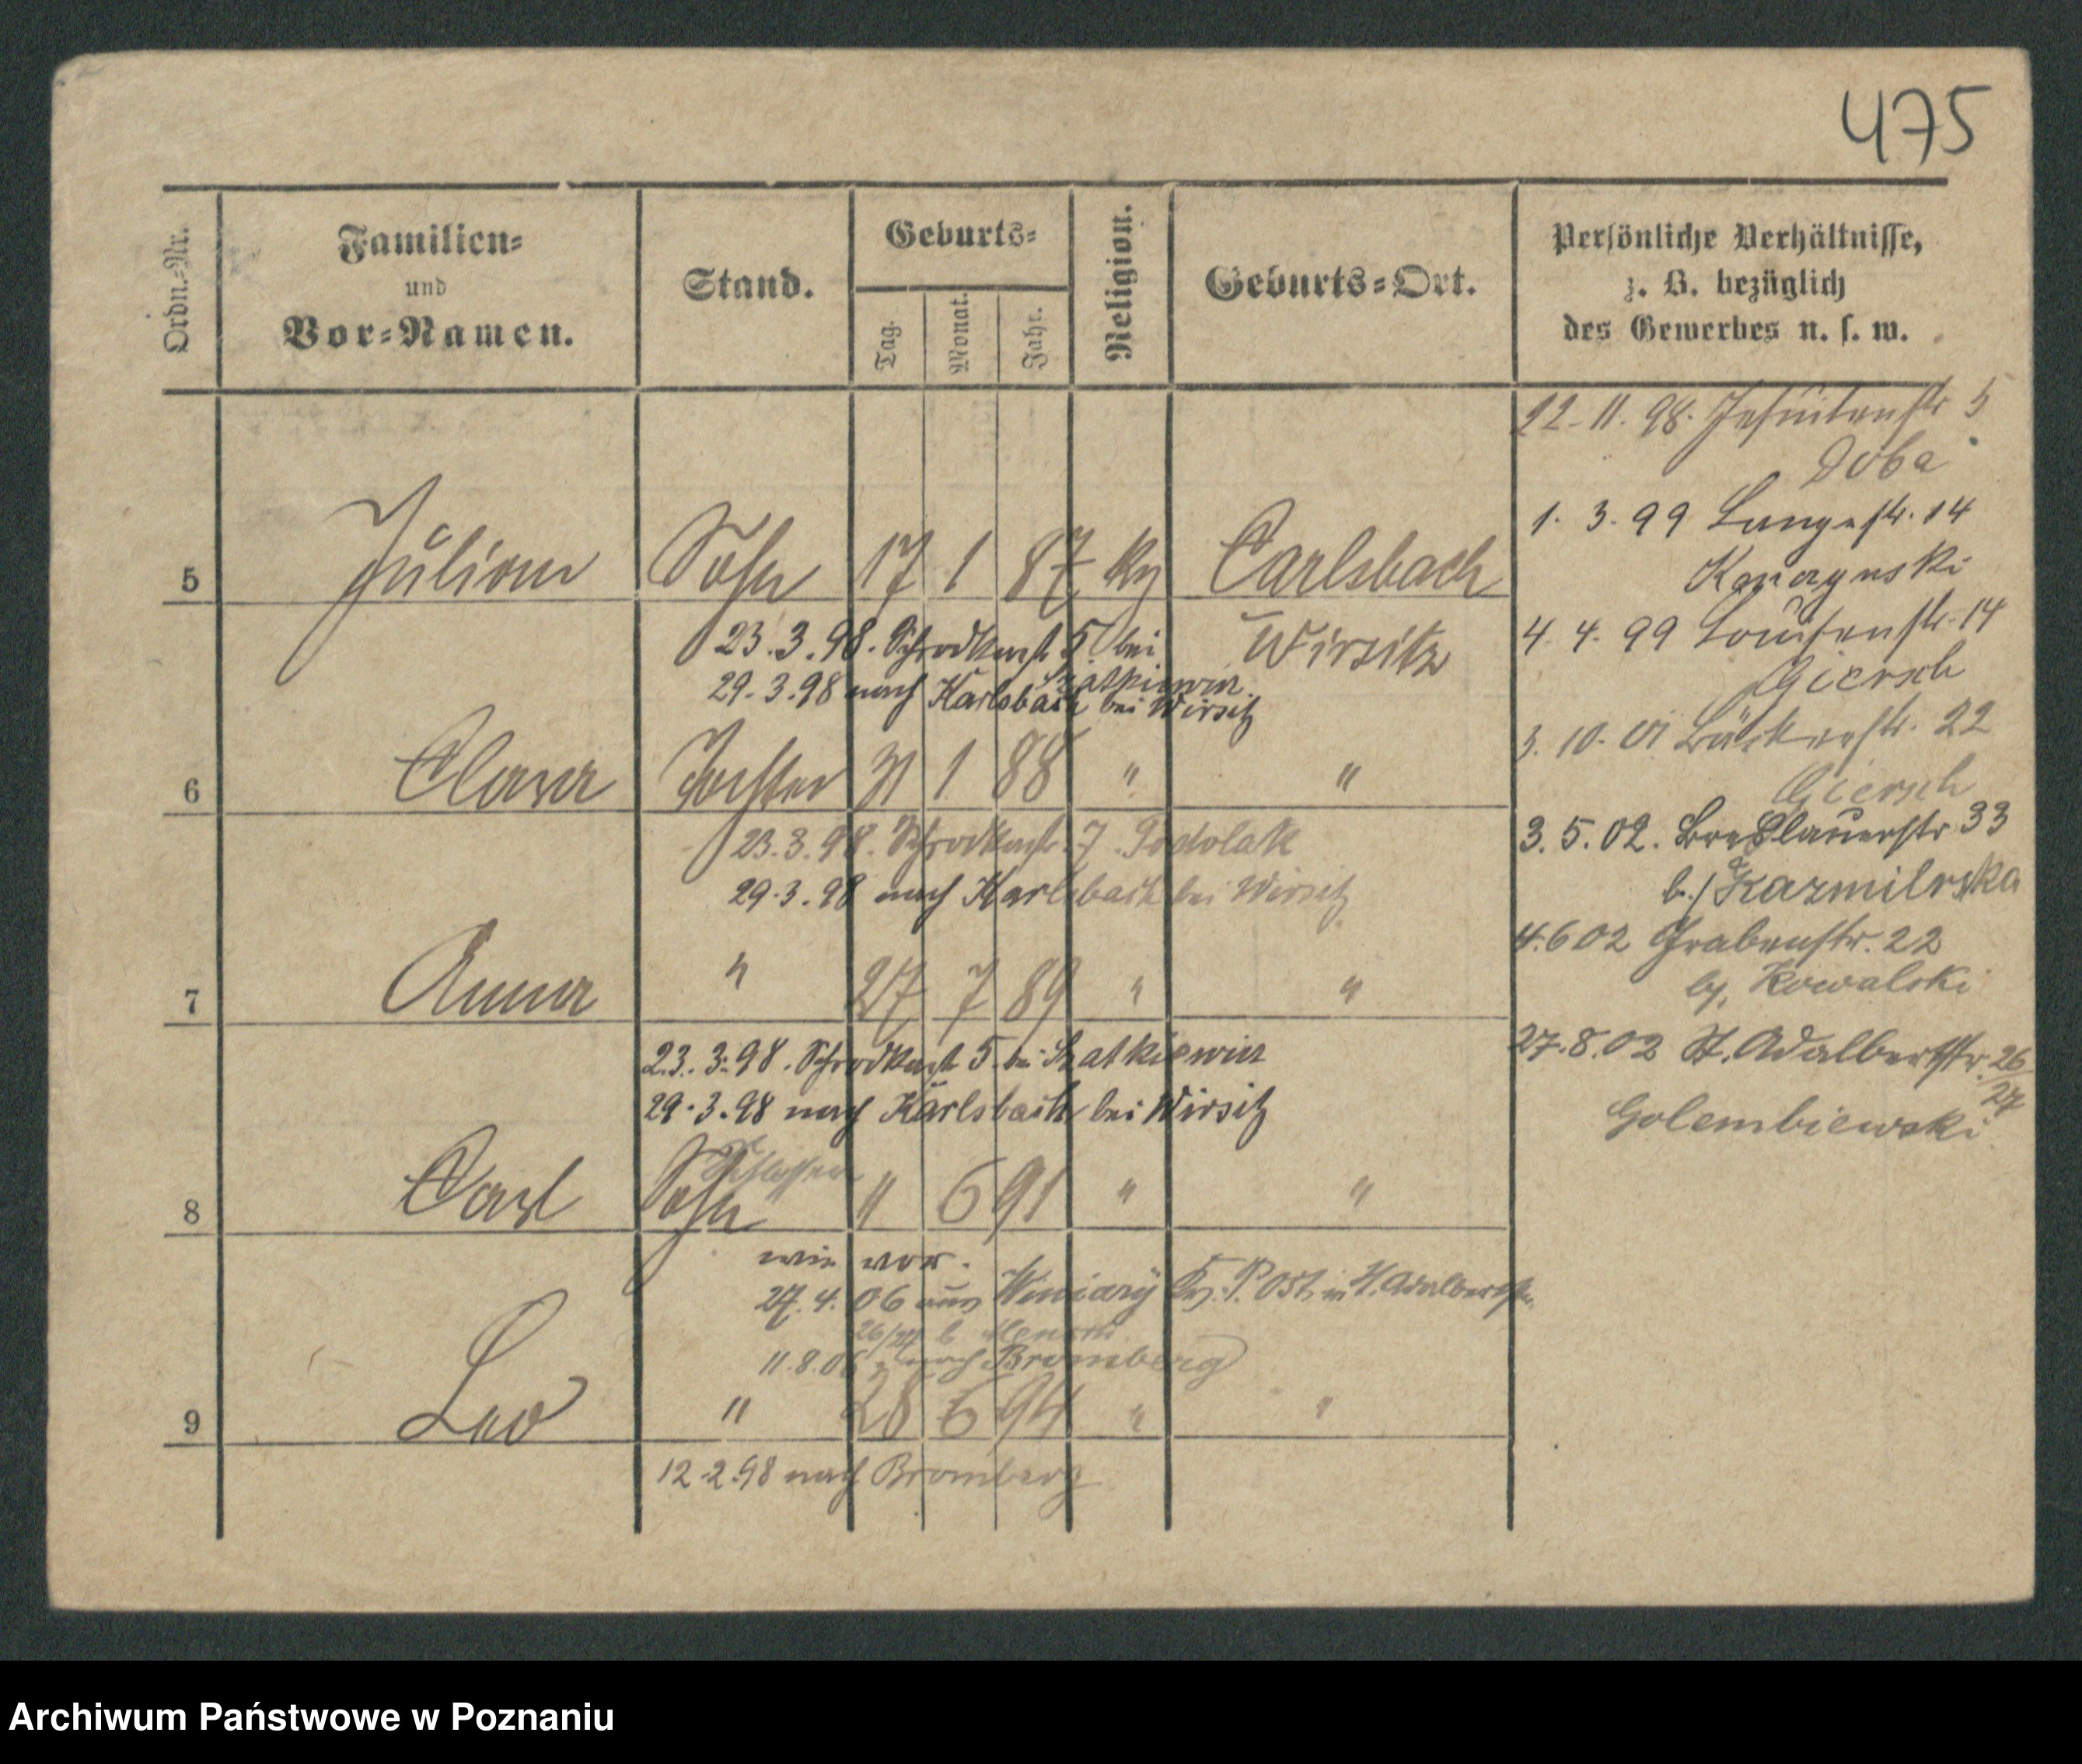 475
Ordn.-Nr.
Familien-
und
Vor-Namen.
Stand.
Geburts-
Tag.
Monat.
Jahr.
Religion.
Geburts-Ort.
Persönliche Verhältnisse,
z. B. bezüglich
des Gewerbes u. s. w.
22-11. 98. Jesuitenstr 5
Doba
1. 3. 99 Langestr. 14
4. 4. 99 Louisenstr. 14
Giersch
3. 10. 01 Bäckerstr. 22
Giersch
3. 5. 02. Breslauerstr 33
b./ Kazmilrska
4.6 02 Grabenstr. 22
by. Kowalski
27. 8. 02 St. Adalbertstr. 26/27
Golembiewski
5 Julian Sohn 17 1 87 Carlsbach
Wirsitz
23. 3. 98. Schrodkastr 5 bei
29. 3. 98 nach Karlsbach bei Wirsitz
6 Clara Tochter 31 1 88 " "
23. 3. 98. Schrodkastr. 7. Podolak
29. 3. 98 nach Karlsbach bei Wirsitz
7 Anna " 27 7 89 " "
23. 3. 98. Schrodkastr 5. bei Szatkiewicz
29. 3. 98 nach Karlsbach bei Wirsitz
Schlosser
8 Carl Sohn 11 6 91 " "
wie vor.
27. 4. 06 aus Winiary Kr. P. Ost, in St. Adalbertstr.
26/27 b.
11. 8. 06 nach Bromberg
9 Leo " 28 6 94 " "
12. 2. 98 nach Bromberg
Archiwum Państwowe w Poznaniu